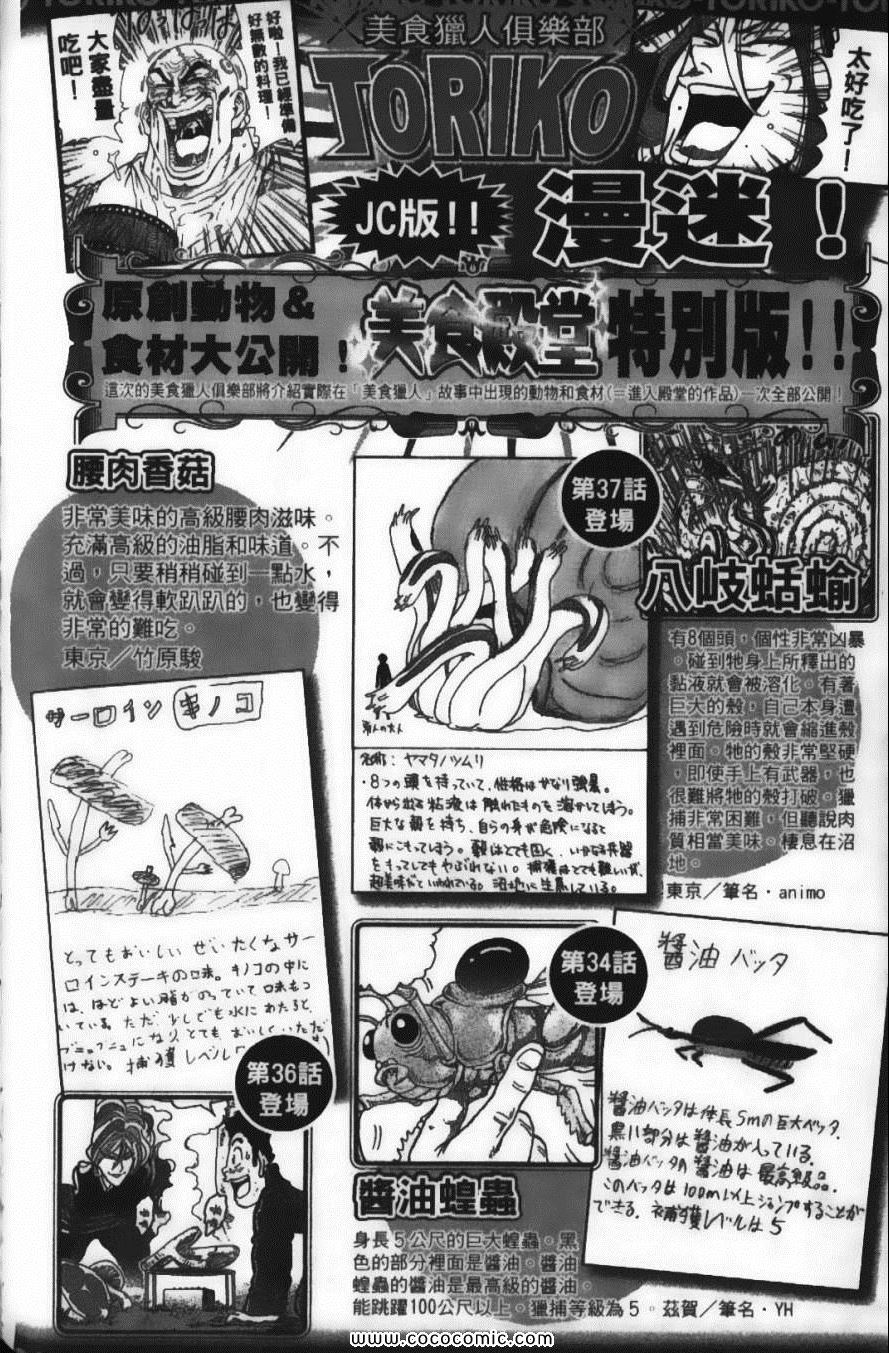 TORIKO
大家盡量
吃吧！
好啦！我已經準備
好無數的料理！
美食獵人俱樂部
TORIKO
太好吃了！
JC版!!
漫迷！
原創動物＆
食材大公開！
美食殿堂特別版!!
這次的美食獵人俱樂部將介紹實際在「美食獵人」故事中出現的動物和食材(＝進入殿堂的作品)一次全部公開！
腰肉香菇
非常美味的高級腰肉滋味。
充滿高級的油脂和味道。不
過，只要稍稍碰到一點水，
就會變得軟趴趴的，也變得
非常的難吃。
東京／竹原駿
サーロインキノコ
とってもおいしい ぜいたくなサー
ロインステーキの味。キノコの中に
は、ほどよい脂がのっていて味もつ
いている。ただ、少しでも水にあたると
ブニョブニョになり、とてもおいしくいただ
けない。捕獲レベル「
第36話
登場
第37話
登場
名前：ヤマタノツムリ
・8つの頭を持っていて、性格はかなり強暴。
体から出る粘液は触れたものを溶かしてしまう。
巨大な殻を持ち、自らの身が危険になると
殻にこもってしまう。殻はとても固く、いかなる兵器
をもってしてもやぶれない。捕獲はとても難しいが、
超美味だといわれている。沼地に生息している。
八岐蛞蝓
有8個頭，個性非常凶暴
。碰到牠身上所釋出的
黏液就會被溶化。有著
巨大的殼，自己本身遭
遇到危險時就會縮進殼
裡面。牠的殼非常堅硬
，即使手上有武器，也
很難將牠的殼打破。獵
捕非常困難，但聽說肉
質相當美味。棲息在沼
地。
東京／筆名・animo
第34話
登場
醬油バッタ
醬油バッタは体長5mの巨大バッタ.
黒い部分は醬油が入っている.
醬油バッタの醬油は最高級品.
このバッタは100m以上ジャンプすることが
できる. 補獲レベルは5
醬油蝗蟲
身長5公尺的巨大蝗蟲。黑
色的部分裡面是醬油。醬油
蝗蟲的醬油是最高級的醬油。
能跳躍100公尺以上。獵捕等級為5。茲賀／筆名・YH
www.cococomic.com